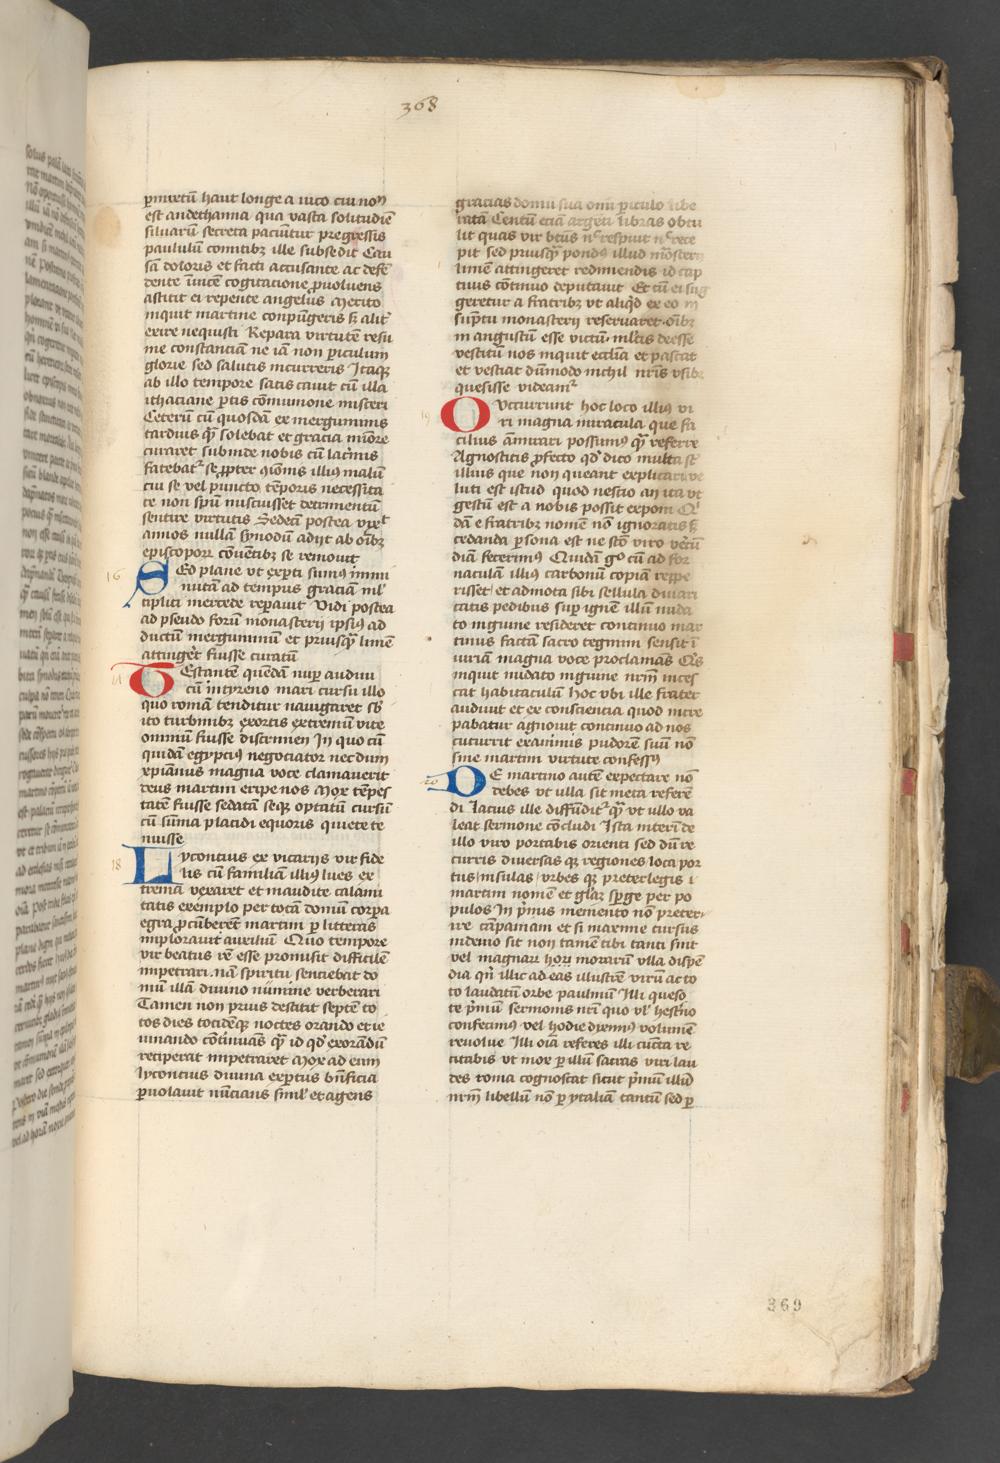 368
p̱mixtū haut longe a vico cui noñ
est andethanna qua vasta solitudiē
siluarū secreta paciūtur pregressis
paululū comitibꝫ ille subsedit Cau
sā doloris et facti accusante ac defē
dente inuicē cogitacione ꝑuoluens
astitit ei repente angelus Merito
inquit martine conpūgeris sꝫ alit᷑
exire nequisti Repara virtutē resu
me constanciā ne iā non ꝑiculum
glorie sed salutis incurreris Itaqꝫ
ab illo tempore satis cauit cū illa
ithaciane ꝑtis cōmunione misceri
Ceterū cū quosdā ex merguminis
tardius qᷓ solebat et gracia miōre
curaret subinde nobis cū lac̄mis
fatebat᷑ se ꝓpter cōionis illiꝰ malū
cui se vel puncto tēporis necessita
te non spū miscuisset detrimentū
sentire virtutis Sedecī postea vixᵗ
annos nullā synodū adijt ab oībꝫ
episcopoꝝ cōuētibꝫ se remouit
16 Sed plane vt exꝑti sumꝰ immi
nutā ad tempus graciā ml᷑
tiplici mercede reꝑauit Vidi postea
ad pseudo forū monasterij ipsiꝰ ad
ductū merguminū et priusqᷓ limē
attinge᷑t fuisse curatū
Testantē quendā nuꝑ audiui
cū in tyreno mari cursu illo
quo romā tenditur nauigaret sb᷑
ito turbinibꝫ exortis extremū vite
omniū fuisse discrimen In quo cū
quidā egyptiꝰ negociator necdum
xp̄ianus magna voce clamauerit
deus martini eripe nos Mox tēpes
tatē fuisse sedatā seqꝫ optatū cursū
cū sūma placidi equoris quiete te
nuisse
18 Lycontius ex vicarijs vir fide
lis cū familiā illiꝰ lues ex
trema vexaret et inaudite calami
tatis exemplo per totā domū corpa
egra ꝓcūberēt martini ꝑ litteras
implorauit auxiliū Quo tempore
vir beatus rē esse promisit difficilē
impetrari nā spiritu senciebat do
mū illā diuino nūmine verberari
Tamen non prius destitit septē to
tos dies totidēqꝫ noctes orando et ie
iunando cōtinuās qᷓ id qd̓ exorādū
reciperat impetraret Mox ad eum
lycontius diuina exꝑtus bn̄ficia
ꝑuolauit nūcians simlᷓ et agens
gracias domū suā omī ꝑiculo libe
ratā Centū eciā argēti libras obtu
lit quas vir btūs nᶜ respuit nᶜ rece
pit sed priusqᷓ pondꝰ illud mōsterij
limē attingeret redimendis id cap
tiuis cōtinuo deputauit Et cū ei sug
geretur a fratribꝫ vt aliqd̓ ex eo in
sūptū monasterij reseruaret oībꝫ
in angustū esse victū ml̓tis deesse
vestitū nos inquit ecclīa et pascat
et vestiat dūmodo nichil nrīs vsibꝫ
quesisse videam᷑
19 Occurrunt hoc loco illiꝰ vi
ri magna miracula que fa
cilius āmirari possumꝰ qᷓ referre
Agnoscitis ꝓfecto qd̓ dico multa st̄
illius que non queant explicari ve
luti est istud quod nescio an ita vt
gestū est a nobis possit exponi Qͥ
dā e fratribꝫ nomē nō ignoratis sꝫ
cedanda ꝑsona est ne stō viro v̓ecū
diā fecerimꝰ Quidā gͦ cū ad for
naculā illiꝰ carbonū copiā reppe
risset et admota sibi sellula diuari
catis pedibus suꝑ ignē illū nuda
to inguine resideret continuo mar
tinus factā sacro tegmini sensit ī
iuriā magna voce proclamās Qͥs
inquit nudato inguine nrm̄ inces
tat habitaculū Hoc vbi ille frater
audiuit et ex consciencia quod incre
pabatur agnouit continuo ad nos
cucurrit exanimis pudorē suū nō
sine martini virtute confessꝰ
20 De martino autē expectare nō
debes vt vlla sit meta referē
di lacius ille diffūdit᷑ qᷓ vt vllo va
leat sermone cōcludi Ista interī de
illo viro portabis orienti sed dū re
curris diuersas qꝫ regiones loca por
tus insulas vrbes qꝫ preterlegis i
martini nomē et gl̄az sꝑge per po
pulos In p̓mis memento nō preter
ire cāpaniam et si maxime cursus
indeuio sit non tamē tibi tanti sint
vel magnaꝝ morarū vlla dispē
dia qn̓ illic ad eas illustrē virū ac to
to laudatū orbe paulinū Illi queso
te p̓mū sermonis nr̄i quo vl᷑ hest̓no
confecimꝰ vel hodie dximꝰ volumē
reuolue Illi oīa referes illi cūcta re
citabis vt mox ꝑ illū sacras viri lau
des roma cognoscat sicut p̓mū illud
nrm̄ libellū nō ꝑ ytaliā tantū sed ꝑ
369